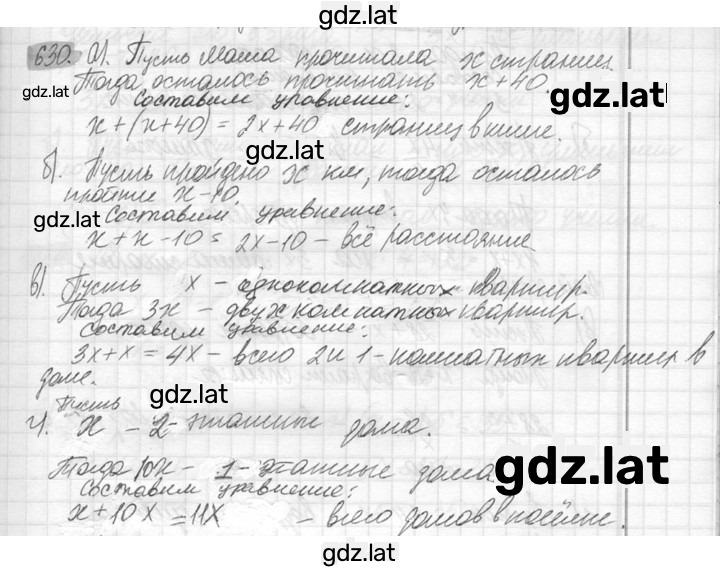 gdz.lat
630. а). Пусть Маша прочитала x страниц.
gdz.lat
Тогда осталось прочитать x+40.
gdz.lat
Составим уравнение:
x+(x+40) = 2x+40 страниц в книге.
gdz.lat
б). Пусть пройдено x км, тогда осталось
пройти x-10.
gdz.lat
Составим уравнение:
x+x-10 = 2x-10 - всё расстояние
gdz.lat
в). Пусть x - однокомнатных квартир.
Тогда 3x - двухкомнатных квартир.
Составим уравнение:
3x+x = 4x - всего 2 и 1-комнатных квартир в
доме.
gdz.lat
Пусть
г). x - 2-этажные дома.
gdz.lat
Тогда 10x - 1-этажные дома
Составим уравнение:
x+10x = 11x - всего домов в посёлке.
gdz.lat